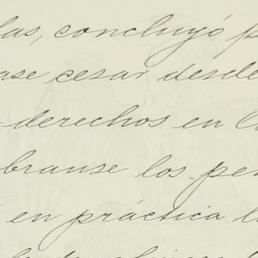 las, concluyó p
ase cesar desde
derechos en l
branse los pe
en práctica l